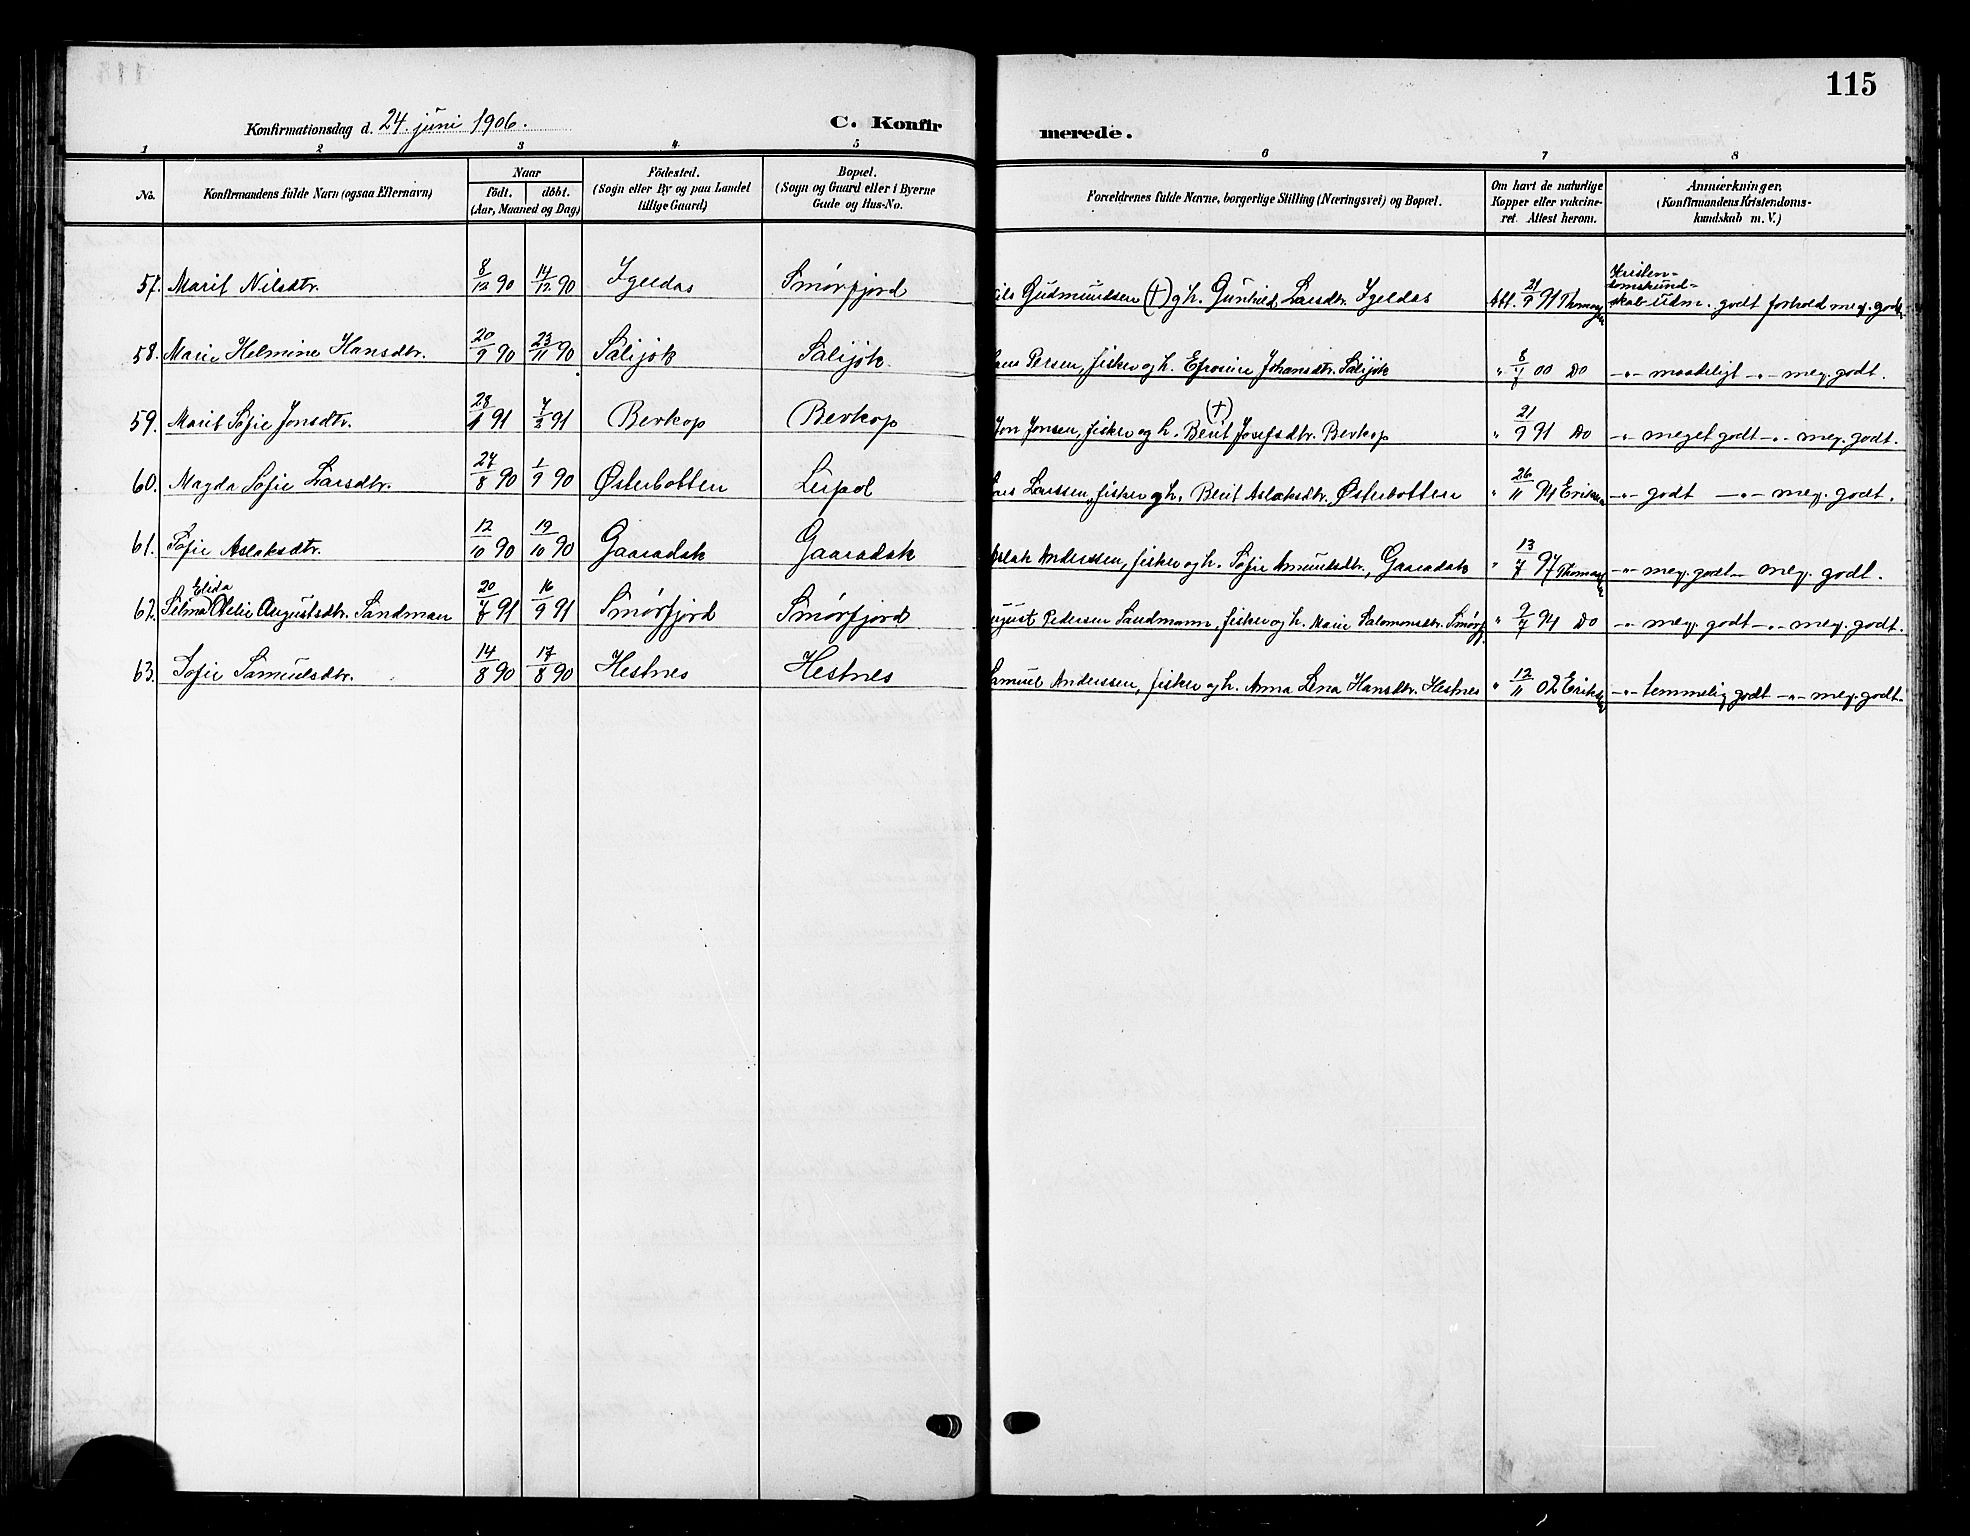 115
Konfirmationsdag d. 24. juni 1906.
C. Konfirmerede.
1 2 3 4 5 6 7 8
No.
Konfirmandens fulde Navn (ogsaa Efternavn)
Naar
født. døbt.
(Aar, Maaned og Dag)
Fødested.
(Sogn eller By og paa Landet
tillige Gaard)
Bopæl.
(Sogn og Gaard eller i Byerne
Gade og Hus-No.
Forældrenes fulde Navne, borgerlige Stilling (Næringsvei) og Bopæl.
Om havt de naturlige
Kopper eller vakcine-
ret. Attest herom.
Anmærkninger.
(Konfirmandens Kristendoms-
kundskab m. V.)
57. Marit Nilsdtr. 8/12 90 14/12 90 Igeldas Smørfjord ils Gudmundsen (†) og h. Gunhild Larsdtr. Igeldas Att. 21/9 91 Thomassen Kristen-
domskund-
skab Udm. godt forhold meg. godt
58. Marie Helmine Hansdtr. 20/9 90 23/11 90 Salijok Salijok. ans Persen, fisker og h. Efrosine Johansdtr. Salijok " 8/7 00 Do -"- maadeligt -"- meg. godt.
59. Marit Sofie Jonsdtr. 28/1 91 7/2 91 Bevkop Bevkop Jon Jonsen, fisker og h. Berit (†) Josefsdtr. Bevkop " 21/9 91 Do -"- meget godt -"- meg. godt.
60. Magda Sofie Larsdtr. 27/8 90 1/9 90 Østerbotten Leipol ars Larssen, fisker og h. Berit Aslaksdtr. Østerbotten " 26/11 94 Eriksen -"- godt -"- meg. godt.
61. Sofie Aslaksdtr. 12/10 90 19/10 90 Gaaradak Gaaradak Aslak Anderssen, fisker og h. Sofie Amundsdtr., Gaaradak " 13/7 97 Thomassen -"- meg. godt -"- meg. godt.
62. Selma Elida Augustsdtr. Sandman 20/7 91 16/9 91 Smørfjord Smørfjord ugust Pedersen Sandmann, fisker og h. Marie Salomonsdtr. Smørfj. " 9/7 94 Do -"- meg. godt -"- meg. godt.
63. Sofie Samuelsdtr. 14/8 90 17/8 90 Hestnes Hestnes Samuel Anderssen, fisker og h. Anna Lena Hansdtr. Hestnes " 12/11 02 Eriksen -"- temmelig godt -"- meg. godt.